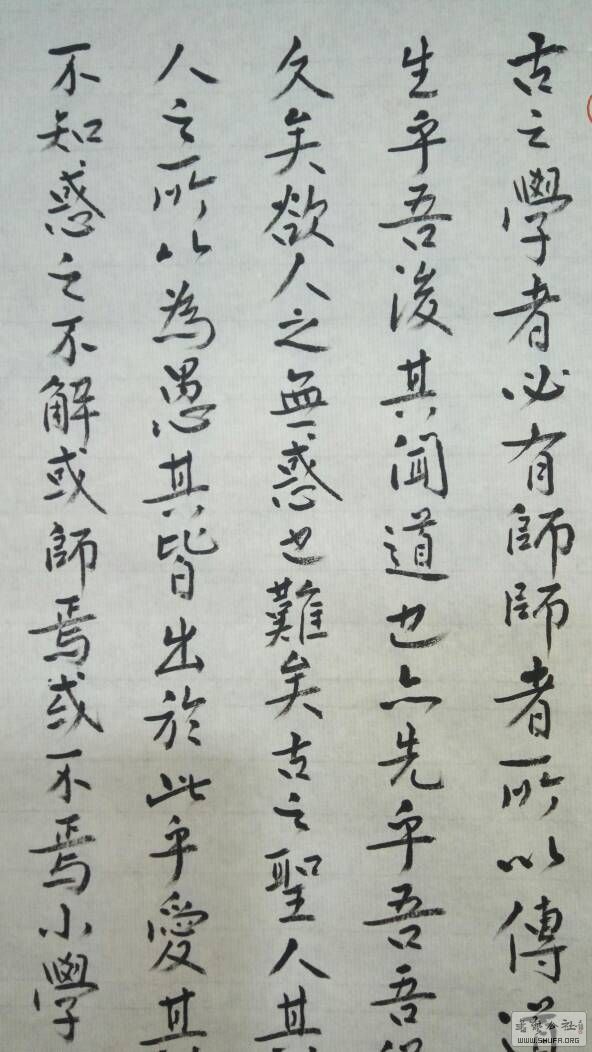 古之學者必有師師者所以傳道
生乎吾後其聞道也亦先乎吾吾
久矣欲人之無惑也難矣古之聖人其
人之所以為愚其皆出於此乎愛其
不知惑之不解或師焉或不焉小學
書藝公社
WWW.SHUFA.ORG